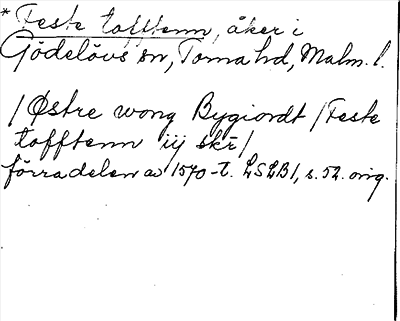 * Feste tofftenn, åker i
Gödelövs sn, Torna hd, Malm. l.
/Østre wong Bygiordt/Feste
tofftenn iij skr̄/
förra delen av 1570-t. LSLB1, s. 52. orig.